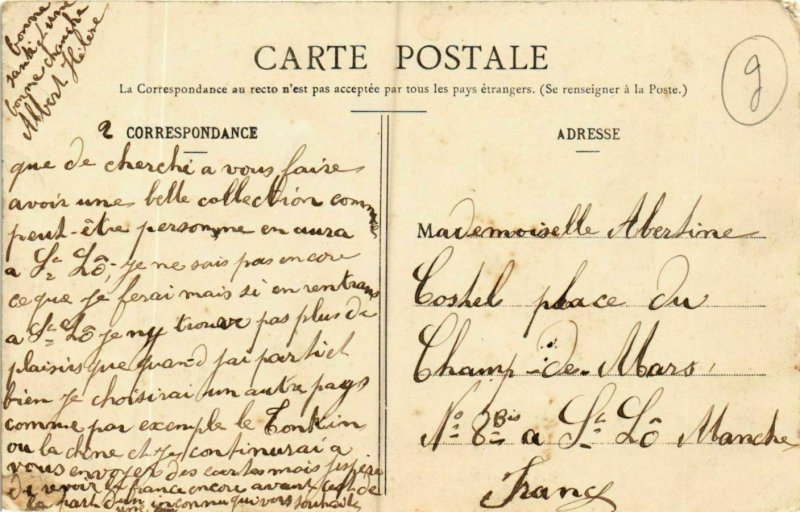 bonne
santé et une
bonne chanche
Albert Hélène
CARTE POSTALE
La Correspondance au recto n'est pas acceptée par tous les pays étrangers. (Se renseigner à la Poste.)
9
2 CORRESPONDANCE
que de cherché a vous faire
avoir une belle collection comme
peut-être personne en aura
a St Lô, je ne sais pas encore
ce que je ferai mais si en rentrans
a St Lô je ny trouve pas plus de
plaisirs que quand j'ai parti et
bien je choisirai un autre pays
comme par exemple le Tonkin
ou la chine et je continurai a
vous envoyer des cartes mais jespère
de revoir la france encore avant cest de
la part d'un inconnu qui vous souhaite
une
ADRESSE
Mademoiselle Abertine
Costel place du
Champ-de-Mars,
No 8Bis a St Lô Manche
France